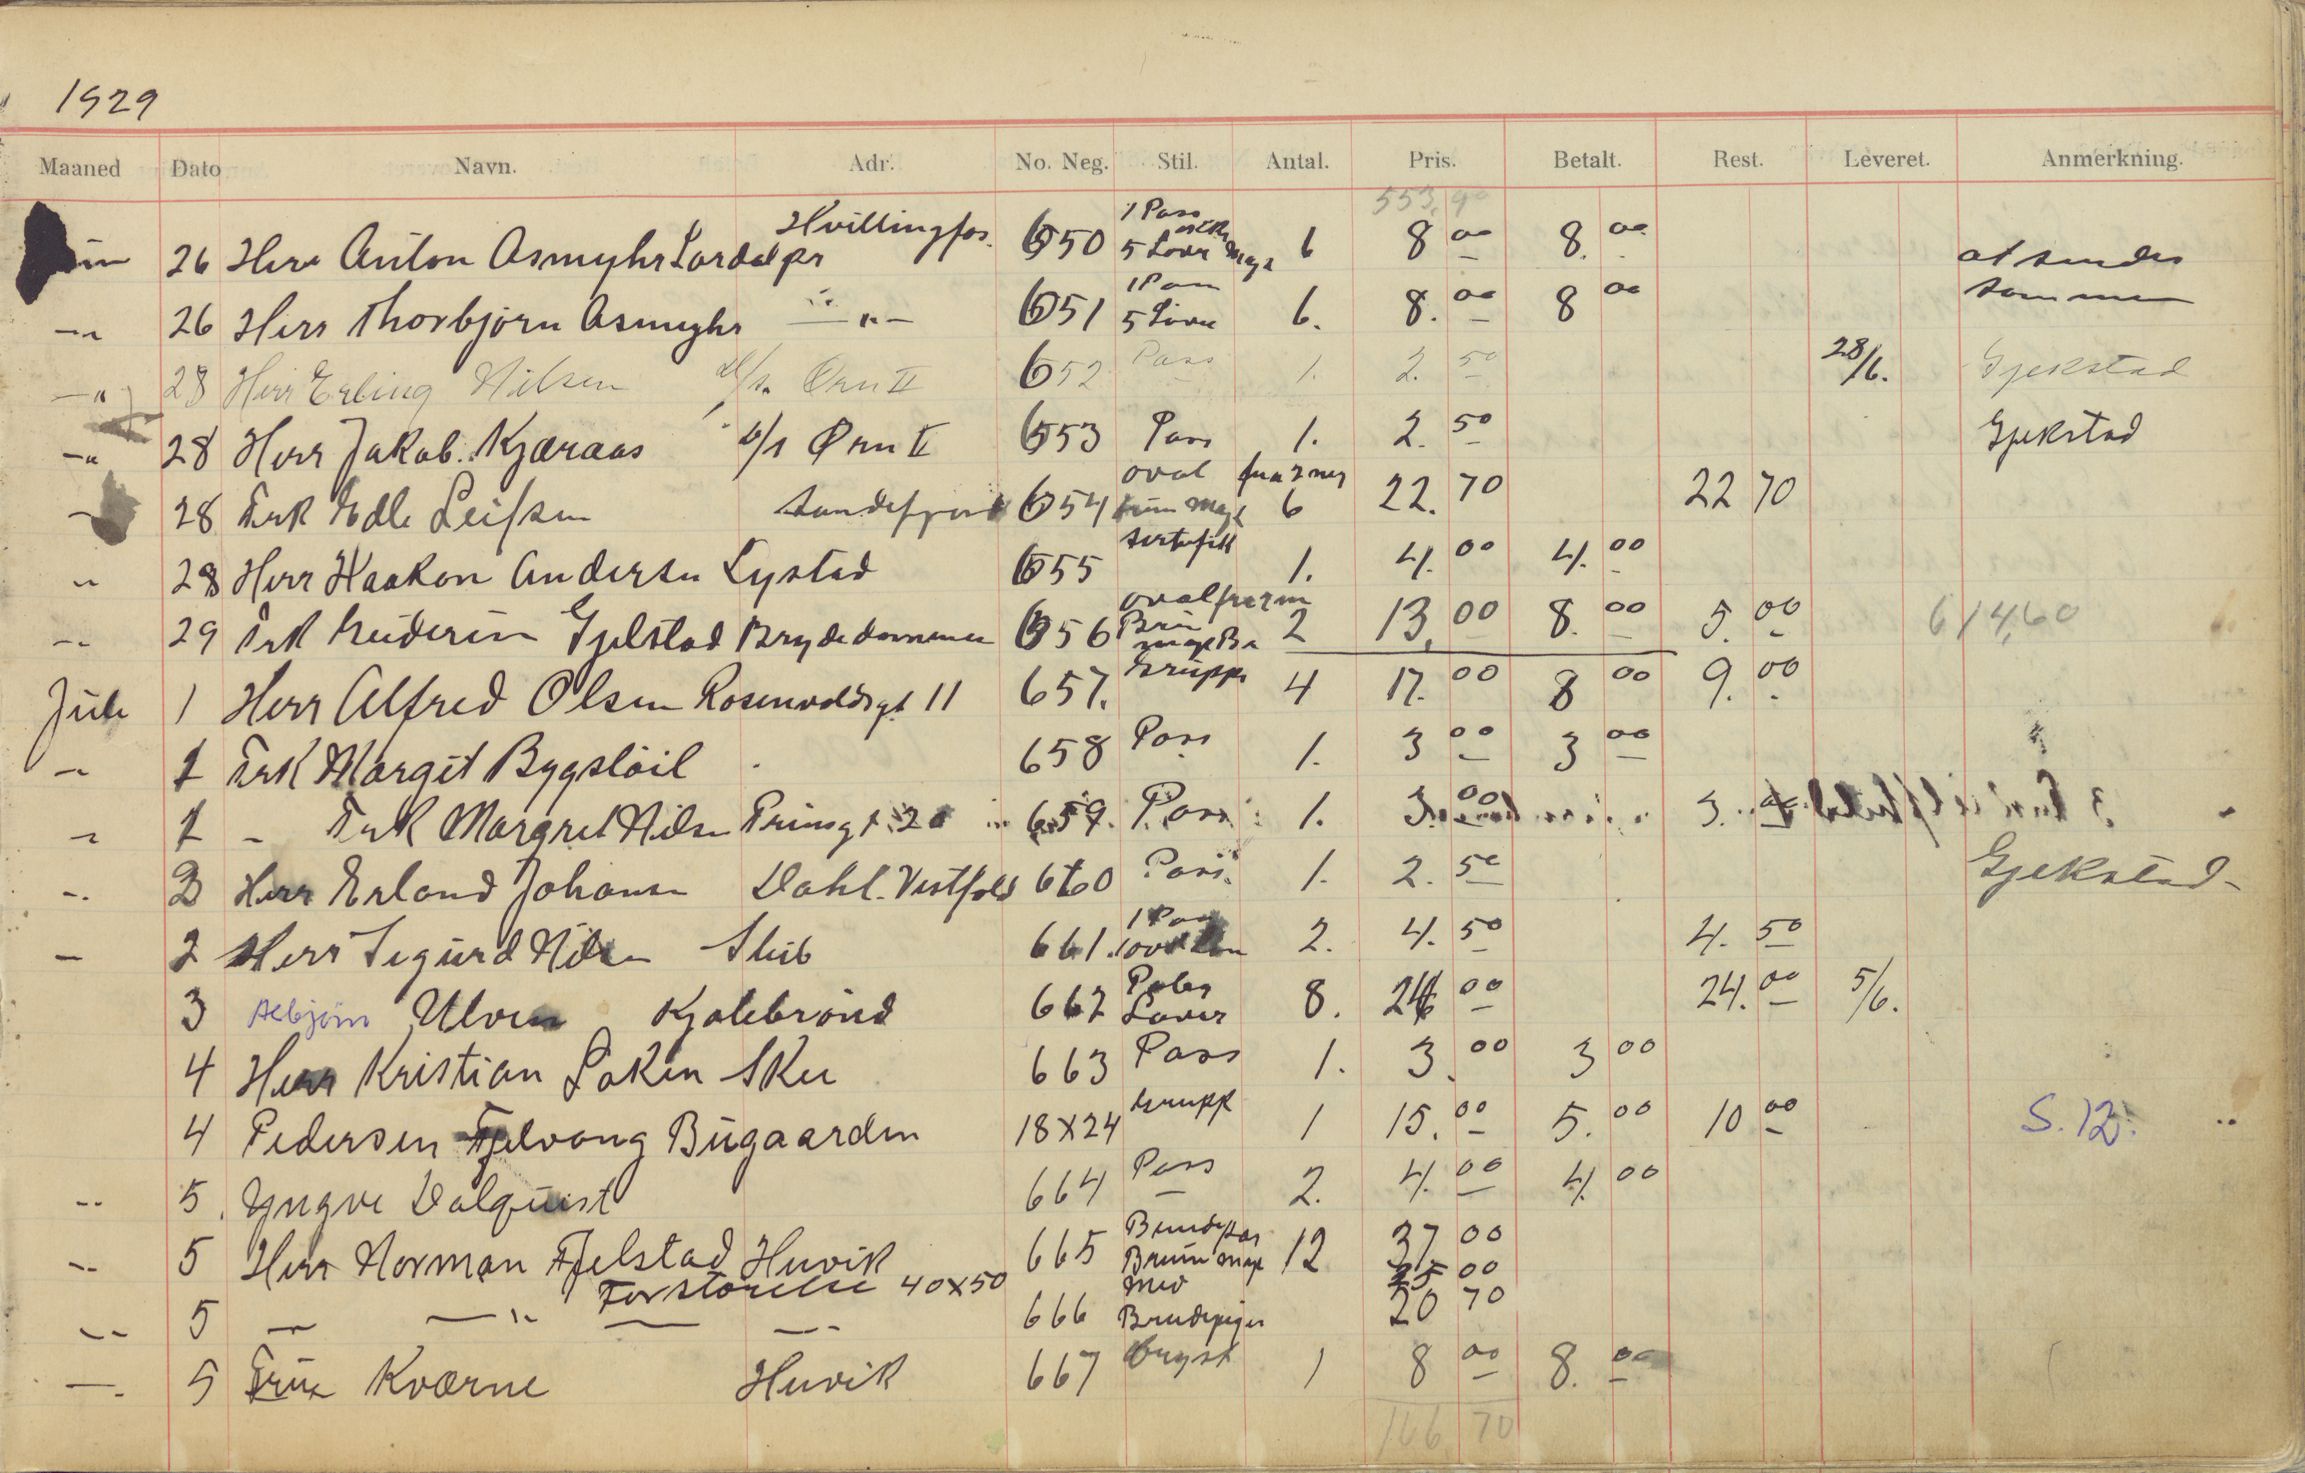 1929
Maaned Dato Navn. Adr. No. Neg. Stil. Antal. Pris. Betalt. Rest. Leveret. Anmerkning.
553,90
26 Herr Anton Asmyhr Lardal pr Hvittingfos. 650 1 Pass 5 Lover 6 8 00 8. 00 at sendes
26 Herr Thorbjørn Asmyhr —"— 651 1 Pass 5 Lover 6. 8. 00 8 00 sammen
—" 28 Herr Erling Nilsen Ørn II 652 Pass 1. 2. 50 28/6. Gjekstad
—" 28 Herr Jakob. Kjæraas Ørn II 653 Pass 1. 2. 50 Gjekstad
28 Frk Edle Leifsen Sandefjord 654 oval 6 22. 70 22 70
" 28 Herr Haakon Andersen Lystad 655 1. 4. 00 4. 00
29 Frk Gjelstad Brydedammen 656 oval 2 13. 00 8. 00 5. 00 614,60
Juli 1 Herr Alfred Olsen Rosenvoldsgt 11 657. Gruppe 4 17. 00 8 00 9. 00
1 Frk Margit Bygslöil 658 Pass 1. 3 00 3 00
1 - Frk Margret Nilsen Prinsgt 20 659. Pass 1. 3. 00 3. 00
2 Herr Erland Johansen Dahl. Vestfold 660 Pass. 1. 2. 50 Gjekstad-
— 2 Herr Sigurd Nilsen 661. 1 Pass 2. 4. 50 4. 50
3 Asbjørn Ulven Kjølebrønd 662 Lover 8. 24 00 24. 00 5/6.
4 Herr Kristian Løken 663 Pass 1. 3. 00 3 00
4 Pedersen Fjelvang Bugaarden 18x24 Grupp 1 15. 00 5. 00 10 00 S. 12.
5. Yngve Dalquist 664 Pass 2. 4. 00 4. 00
5 Herr Norman Fjelstad Huvik 665 Brudepar Brun 12 37 00
Forstörelse 40x50 med 25 00
5 — —"— — —-- 666 Brudepiger 20 70
5 Frue Kværne Huvik 667 bryst 1 8 00 8. 00
166 70